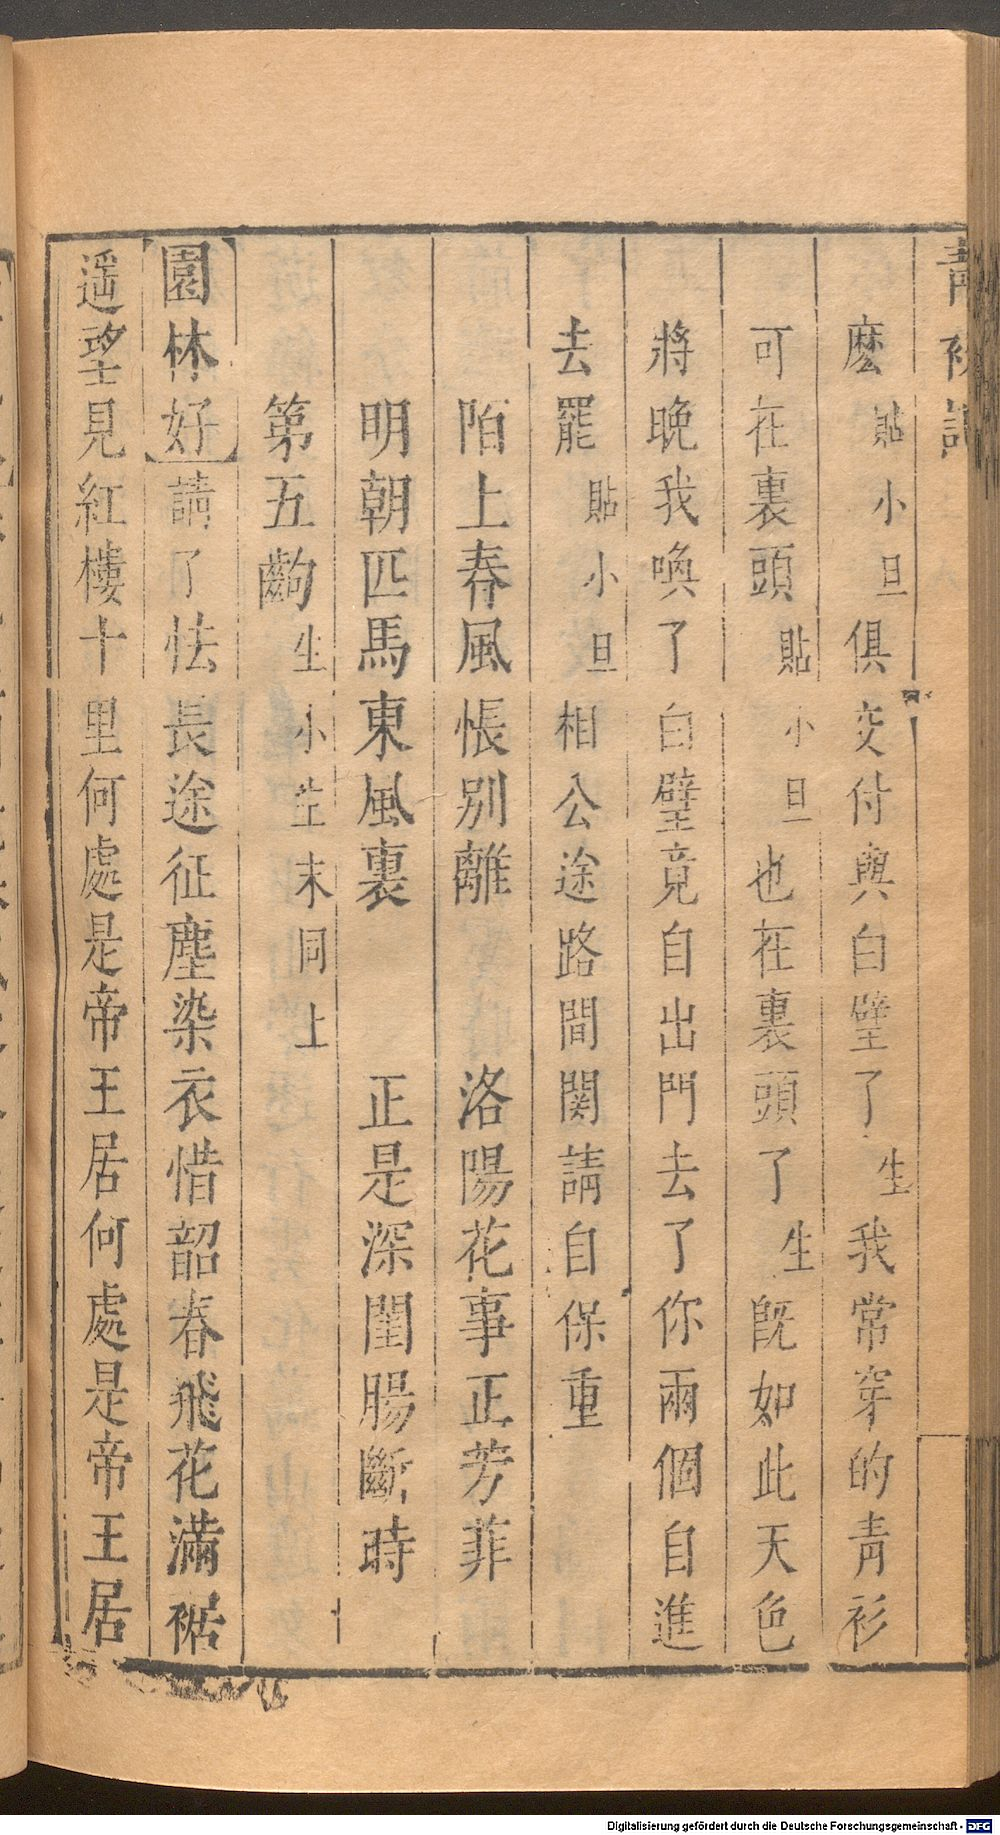 青衫記
麽貼小旦俱交付與白璧了生我常穿的青衫
可在裏頭貼小旦也在裏頭了生旣如此天色
將晚我喚了白璧竟自出門去了你兩個自進
去罷貼小旦相公途路間関請自保重
陌上春風悵別離 洛陽花事正芳菲
明朝匹馬東風裏 正是深閨腸斷時
第五齣生小生末同上
園林好請了怯長途征塵染衣惜韶春飛花滿裾
遥望見紅樓十里何處是帝王居何處是帝王居
Digitalisierung gefördert durch die Deutsche Forschungsgemeinschaft - DFG